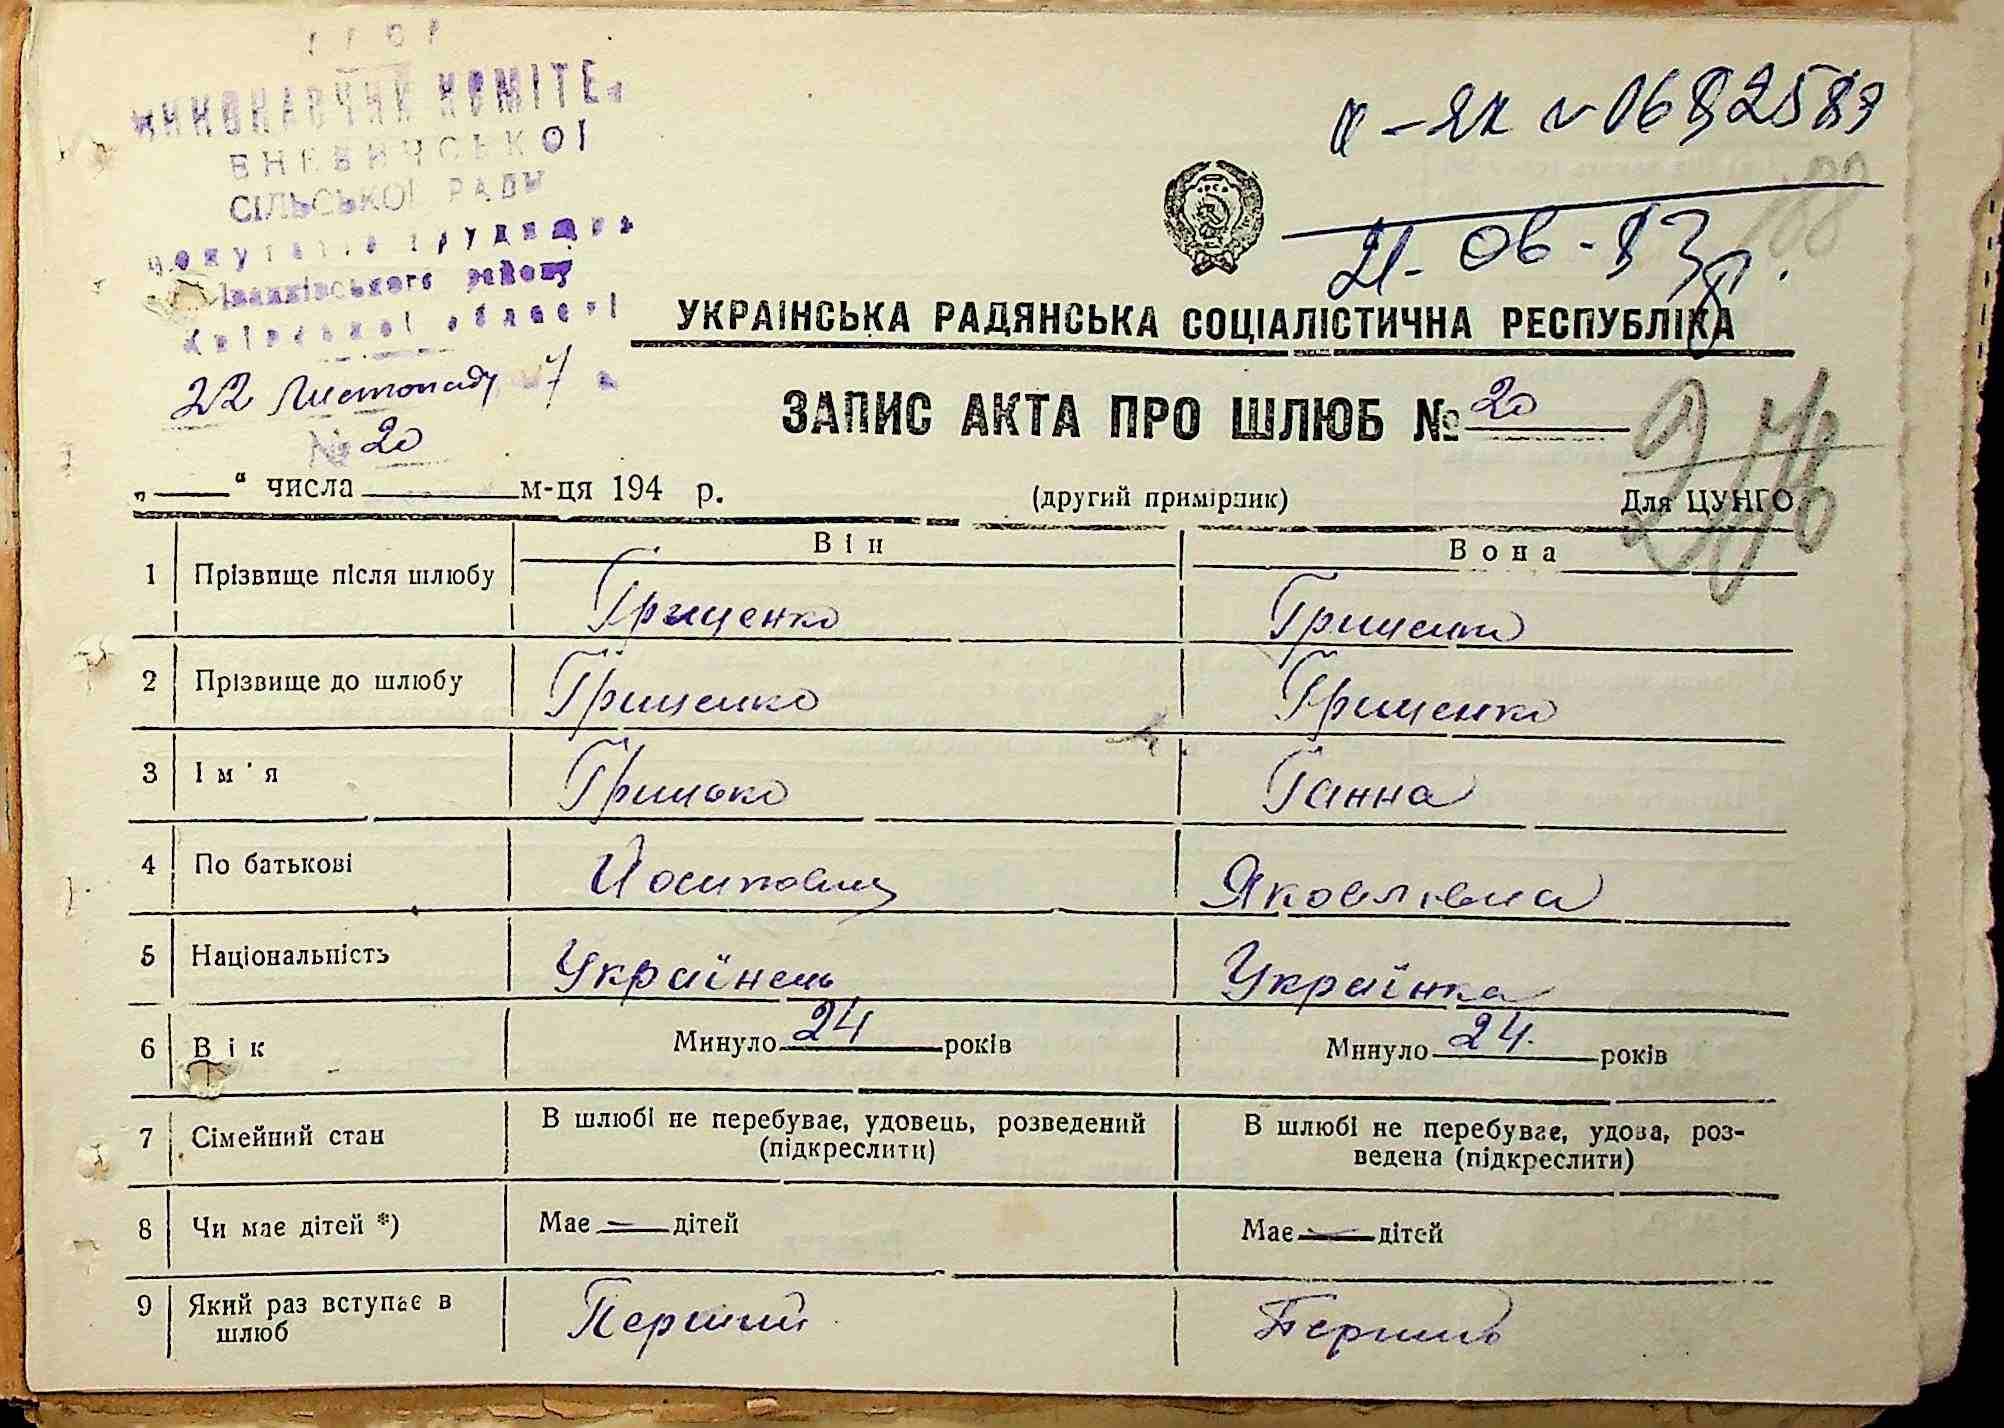 УРСР
ВИКОНАВЧИЙ КОМІТЕТ
СІЛЬСЬКОЇ РАДИ
депутатів трудящих
Іванківського району
Київської області
22 Листопаду 7
№ 20
ІІ-ЯК № 0682583
21-06-83р.
УКРАЇНСЬКА РАДЯНСЬКА СОЦІАЛІСТИЧНА РЕСПУБЛІКА
ЗАПИС АКТА ПРО ШЛЮБ № 20
„ “ числа м-ця 194 р. (другий примірник) Для ЦУНГО
Він Вона
1 Прізвище після шлюбу Грищенко Грищенко
2 Прізвище до шлюбу Грищенко Грищенко
3 Ім'я Грицько Ганна
4 По батькові Йосипович Яковлівна
5 Національність Українець Українка
6 Вік Минуло 24 років Минуло 24 років
7 Сімейний стан В шлюбі не перебуває, удовець, розведений (підкреслити) В шлюбі не перебуває, удова, роз-
ведена (підкреслити)
8 Чи має дітей *) Має — дітей Має — дітей
9 Який раз вступає в шлюб Перший Перший